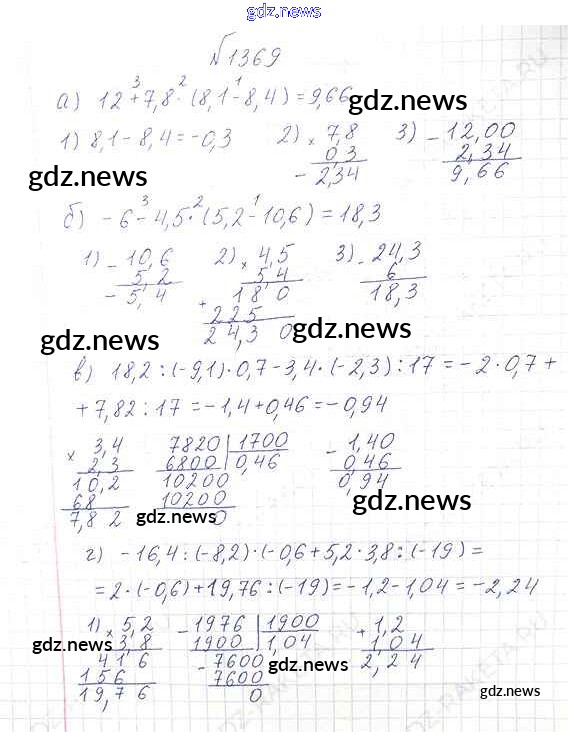 gdz.news
№1369
а) 12 + 7,8 · (8,1 - 8,4) = 9,66
3 2 1
gdz.news
1) 8,1 - 8,4 = -0,3 2) × 7,8 3) - 12,00
0,3 2,34
- 2,34 9,66
gdz.news
б) - 6 - 4,5 · (5,2 - 10,6) = 18,3
3 2 1
1) - 10,6 2) × 4,5 3) - 24,3
5,2 5,4 6
- 5,4 + 18 0 18,3
225
24,3 0
gdz.news gdz.news
в) 18,2 : (-9,1) · 0,7 - 3,4 · (-2,3) : 17 = -2 · 0,7 +
+ 7,82 : 17 = -1,4 + 0,46 = -0,94
× 3,4 7820 1700 - 1,40
2,3 6800 0,46 0,46
10,2 10200 0,94
68 10200
7,8 2 0
gdz.news gdz.news
г) -16,4 : (-8,2) · (-0,6 + 5,2 · 3,8 : (-19) =
= 2 · (-0,6) + 19,76 : (-19) = -1,2 - 1,04 = -2,24
1) × 5,2 - 1976 1900 + 1,2
3,8 1900 1,04 1,04
416 - 7600 2,24
156 7600
19,76 0
gdz.news gdz.news
gdz.news